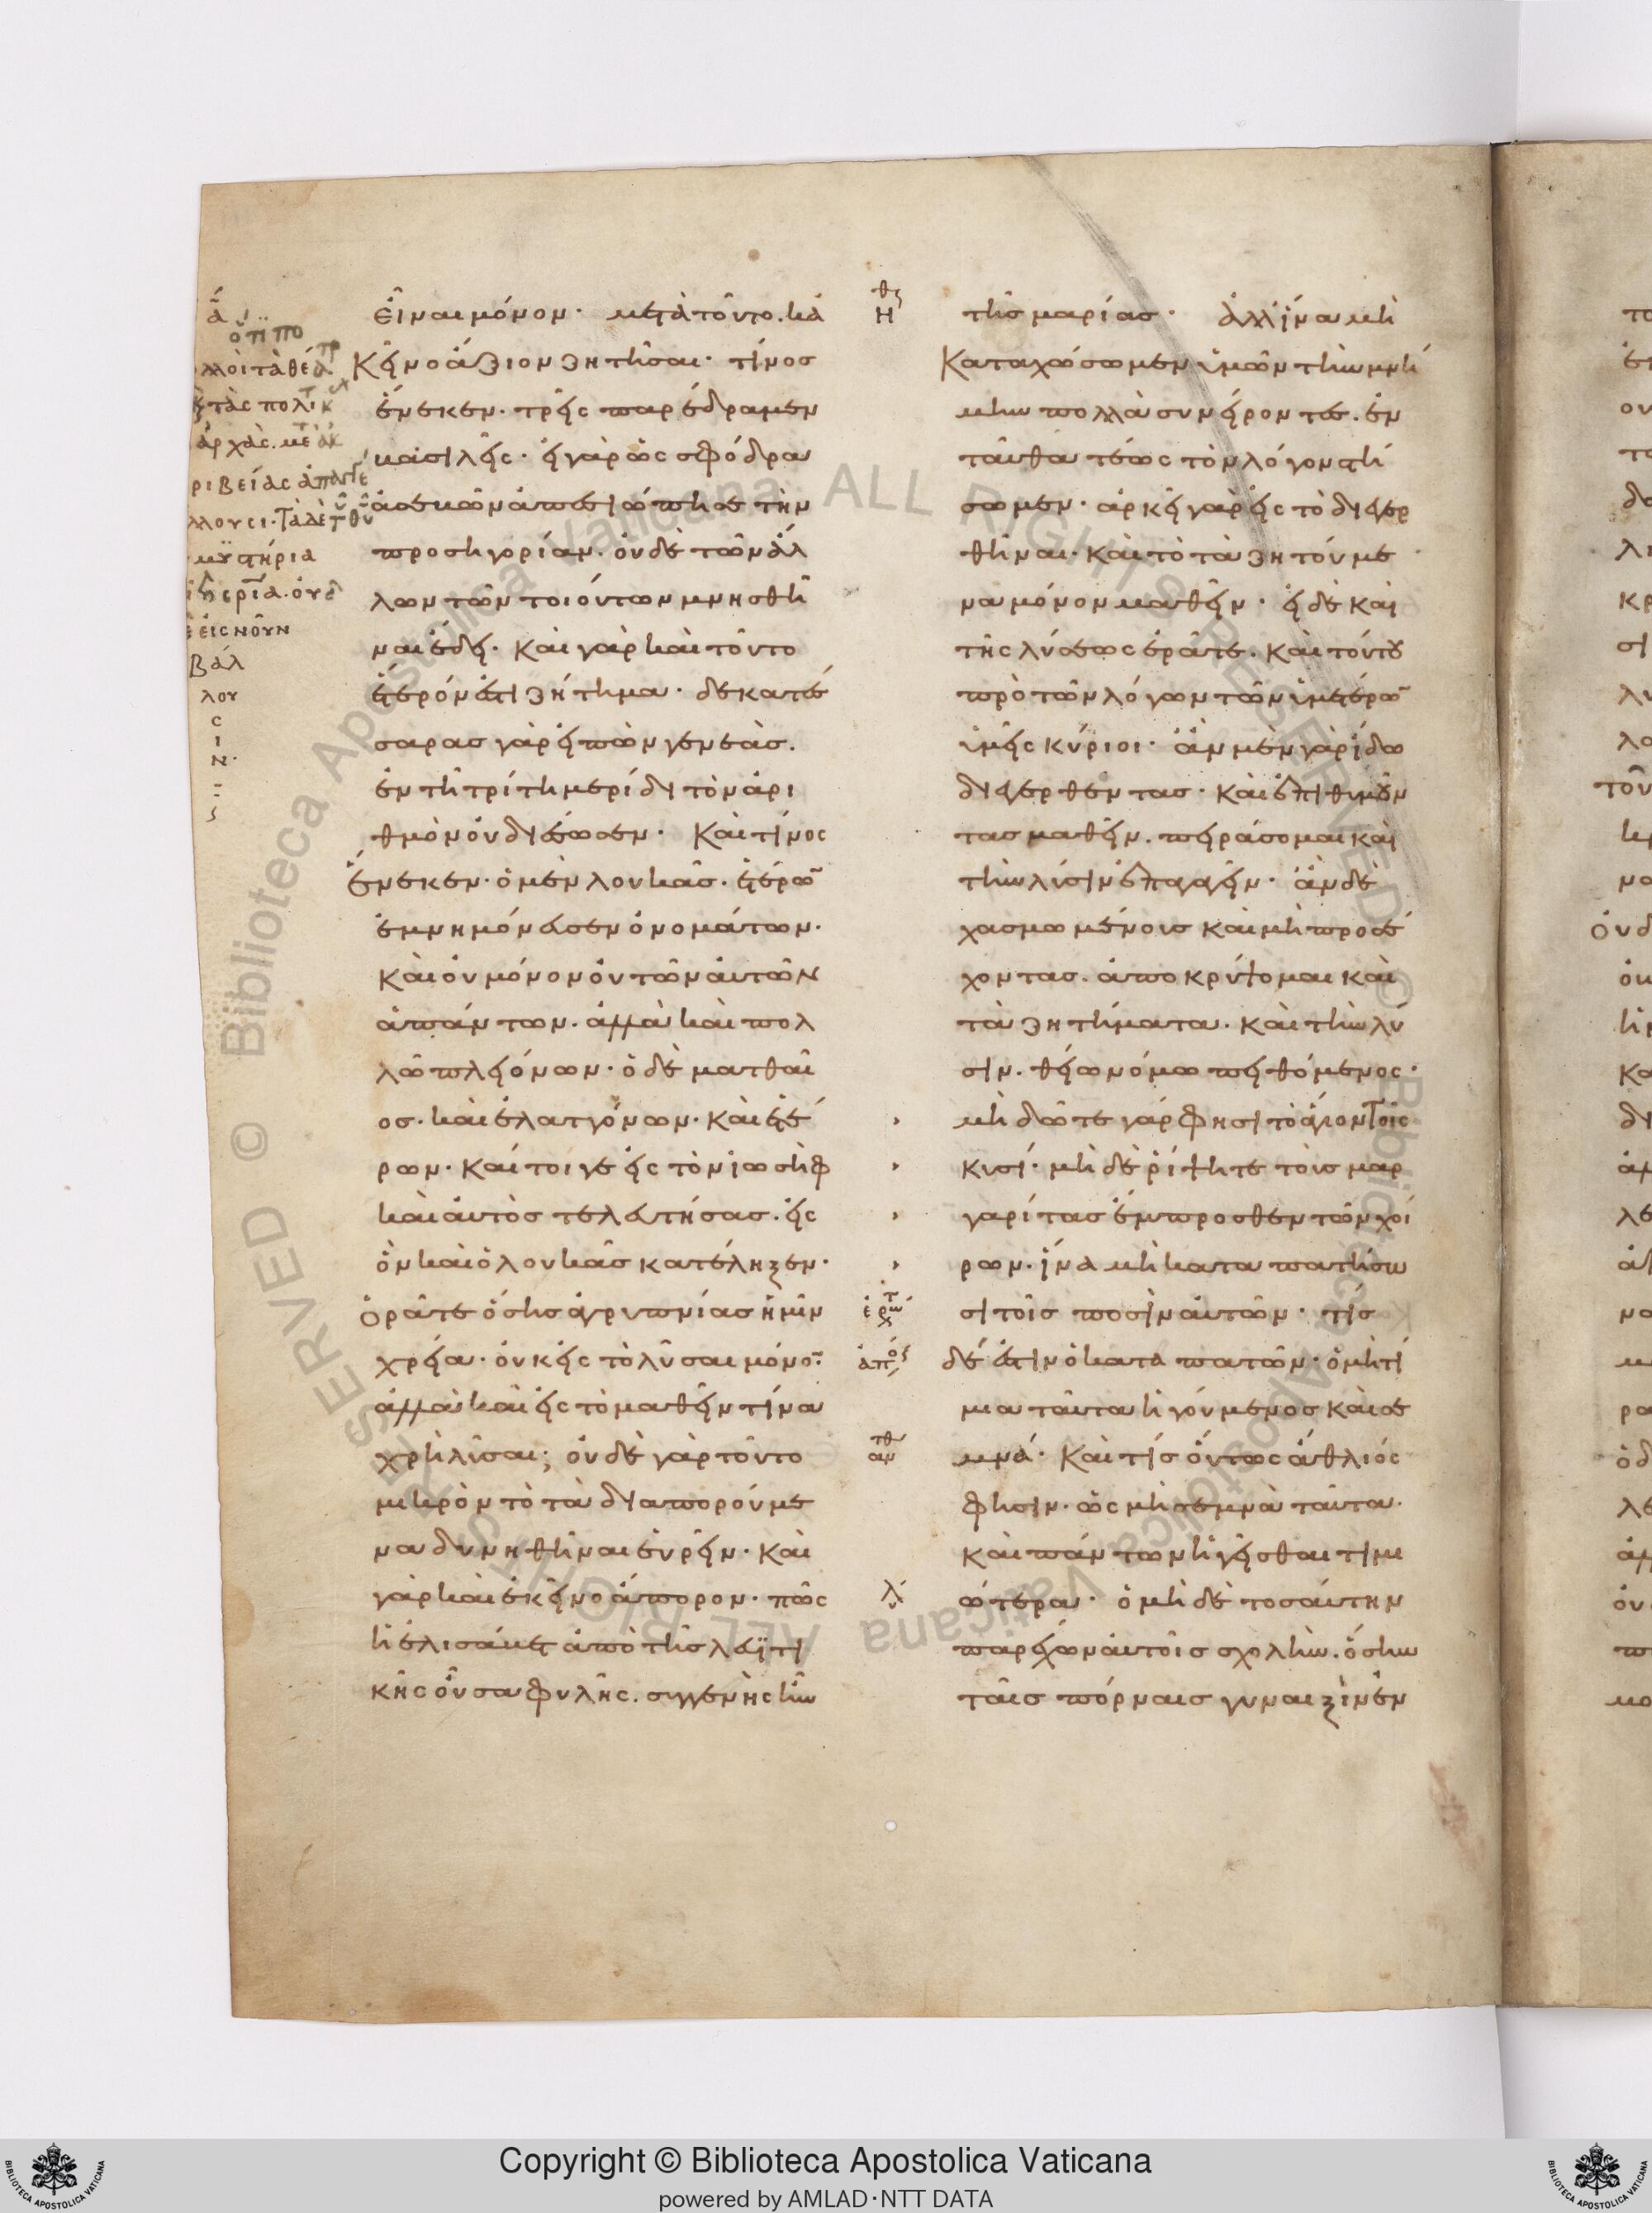 εἶναι μόνον· μετὰ τοῦτο. κἀ
κεῖνο ἄξιον ζητῆσαι· τίνος
ἕνεκεν· τρεῖς παρέδραμεν
βασιλεῖς· εἰ γὰρ ὡς σφόδρα
ἀσεβῶν ἀπεσιώπησε τὴν
προσηγορίαν. οὐδὲ τῶν ἄλ
λων τῶν τοιούτων μνησθῆ
ναι ἔδει· καὶ γὰρ καὶ τοῦτο
ἕτερόν ἐστι ζήτημα· δεκατέσ
σαρας γὰρ εἰπὼν γενεὰς.
ἐν τῆ τρίτη μερίδι τὸν ἀρι
θμὸν οὐ διέσωσεν· Καὶ τίνος
ἕνεκεν· ὁ μὲν λουκᾶς. ἑτέρω̅
ἐμνημόνευσεν ὀνομάτων·
καὶ οὐ μόνον οὐ τῶν αὐτῶν
ἁπάντων. ἀλλὰ καὶ πολ
λῶ πλειόνων· ὁ δὲ ματθαῖ
ος. καὶ ἐλαττόνων· καὶ ἑτέ
ρων· καίτοιγε εἰς τὸν ἰωσὴφ
καὶ αὐτὸς τελευτήσας. εἰς
ὃν καὶ ὁ λουκᾶς κατέληξεν·
ὁρᾶτε ὅσης ἀγρυπνίας ἡμῖν
χρεία· οὐκ εἰς τὸ λῦσαι μόνο̅·
ἀλλὰ καὶ εἰς τὸ μαθεῖν τίνα
χρὴ λῦσαι; οὐδὲ γὰρ τοῦτο
μικρὸν τὸ τὰ διαπορούμε
να δυνηθῆναι εὑρεῖν· καὶ
γὰρ καὶ ἐκεῖνο ἄπορον· πῶς
ἡ ἐλισάβετ ἀπὸ τῆς λευϊτι
κῆς οὖσα φυλῆς. συγγενὴς ἦν
τῆς μαρίας· ἀλλ ἵνα μὴ
καταχώσωμεν ὑμῶν τὴν μνή
μην πολλὰ συνείροντες. ἐν
ταῦθα τέως τὸν λόγον στή
σωμεν· ἀρκεῖ γὰρ εἰς τὸ διεγερ
θῆναι· καὶ τὸ τὰ ζητούμε
να μόνον μαθεῖν· εἰ δὲ καὶ
τῆς λύσεως ἐρᾶτε. καὶ τούτου
πρὸ τῶν λόγων τῶν ἡμετέρω̅
ὑμεῖς κύριοι· ἂν μὲν γὰρ ἴδω
διεγερθέντας· καὶ ἐπιθυμοῦν
τας μαθεῖν. πειράσομαι καὶ
τὴν λύσιν ἐπαγαγεῖν· ἂν δὲ
χασμωμένους καὶ μὴ προσέ
χοντας. ἀποκρύψομαι καὶ
τὰ ζητήματα. καὶ τὴν λύ
σιν. θείω νόμω πειθόμενος·
μὴ δῶτε γάρ φησι τὸ ἅγιον τοῖς
κυσί· μὴ δὲ ῥίψητε τοὺς μαρ
γαρίτας ἔμπροσθεν τῶν χοί
ρων. ἵνα μὴ καταπατήσω
σι τοῖς ποσὶν αὐτῶν· τίς
δέ ἐστιν ὁ καταπατῶν· ὁ μὴ τί
μια ταῦτα ἡγούμενος καὶ σε
μνά· Καὶ τίς οὕτως ἄθλιός
φησιν· ὡς μὴ σεμνὰ ταῦτα·
καὶ πάντων ἡγεῖσθαι τιμι
ώτερα· ὁ μὴ δὲ τοσαύτην
παρέχων αὐτοῖς σχολὴν. ὅσην
ταῖς πόρναις γυναιξὶν ἐν
ὅτι πο
λλοὶ τὰ θέα
τὰς πολι
ἀρχὰς. με ἀκ
ριβείας ἀπαγγέ
λλουσι
μυστήρια
εἰς νοῦν
βάλ
λου
σ
ι
ν·